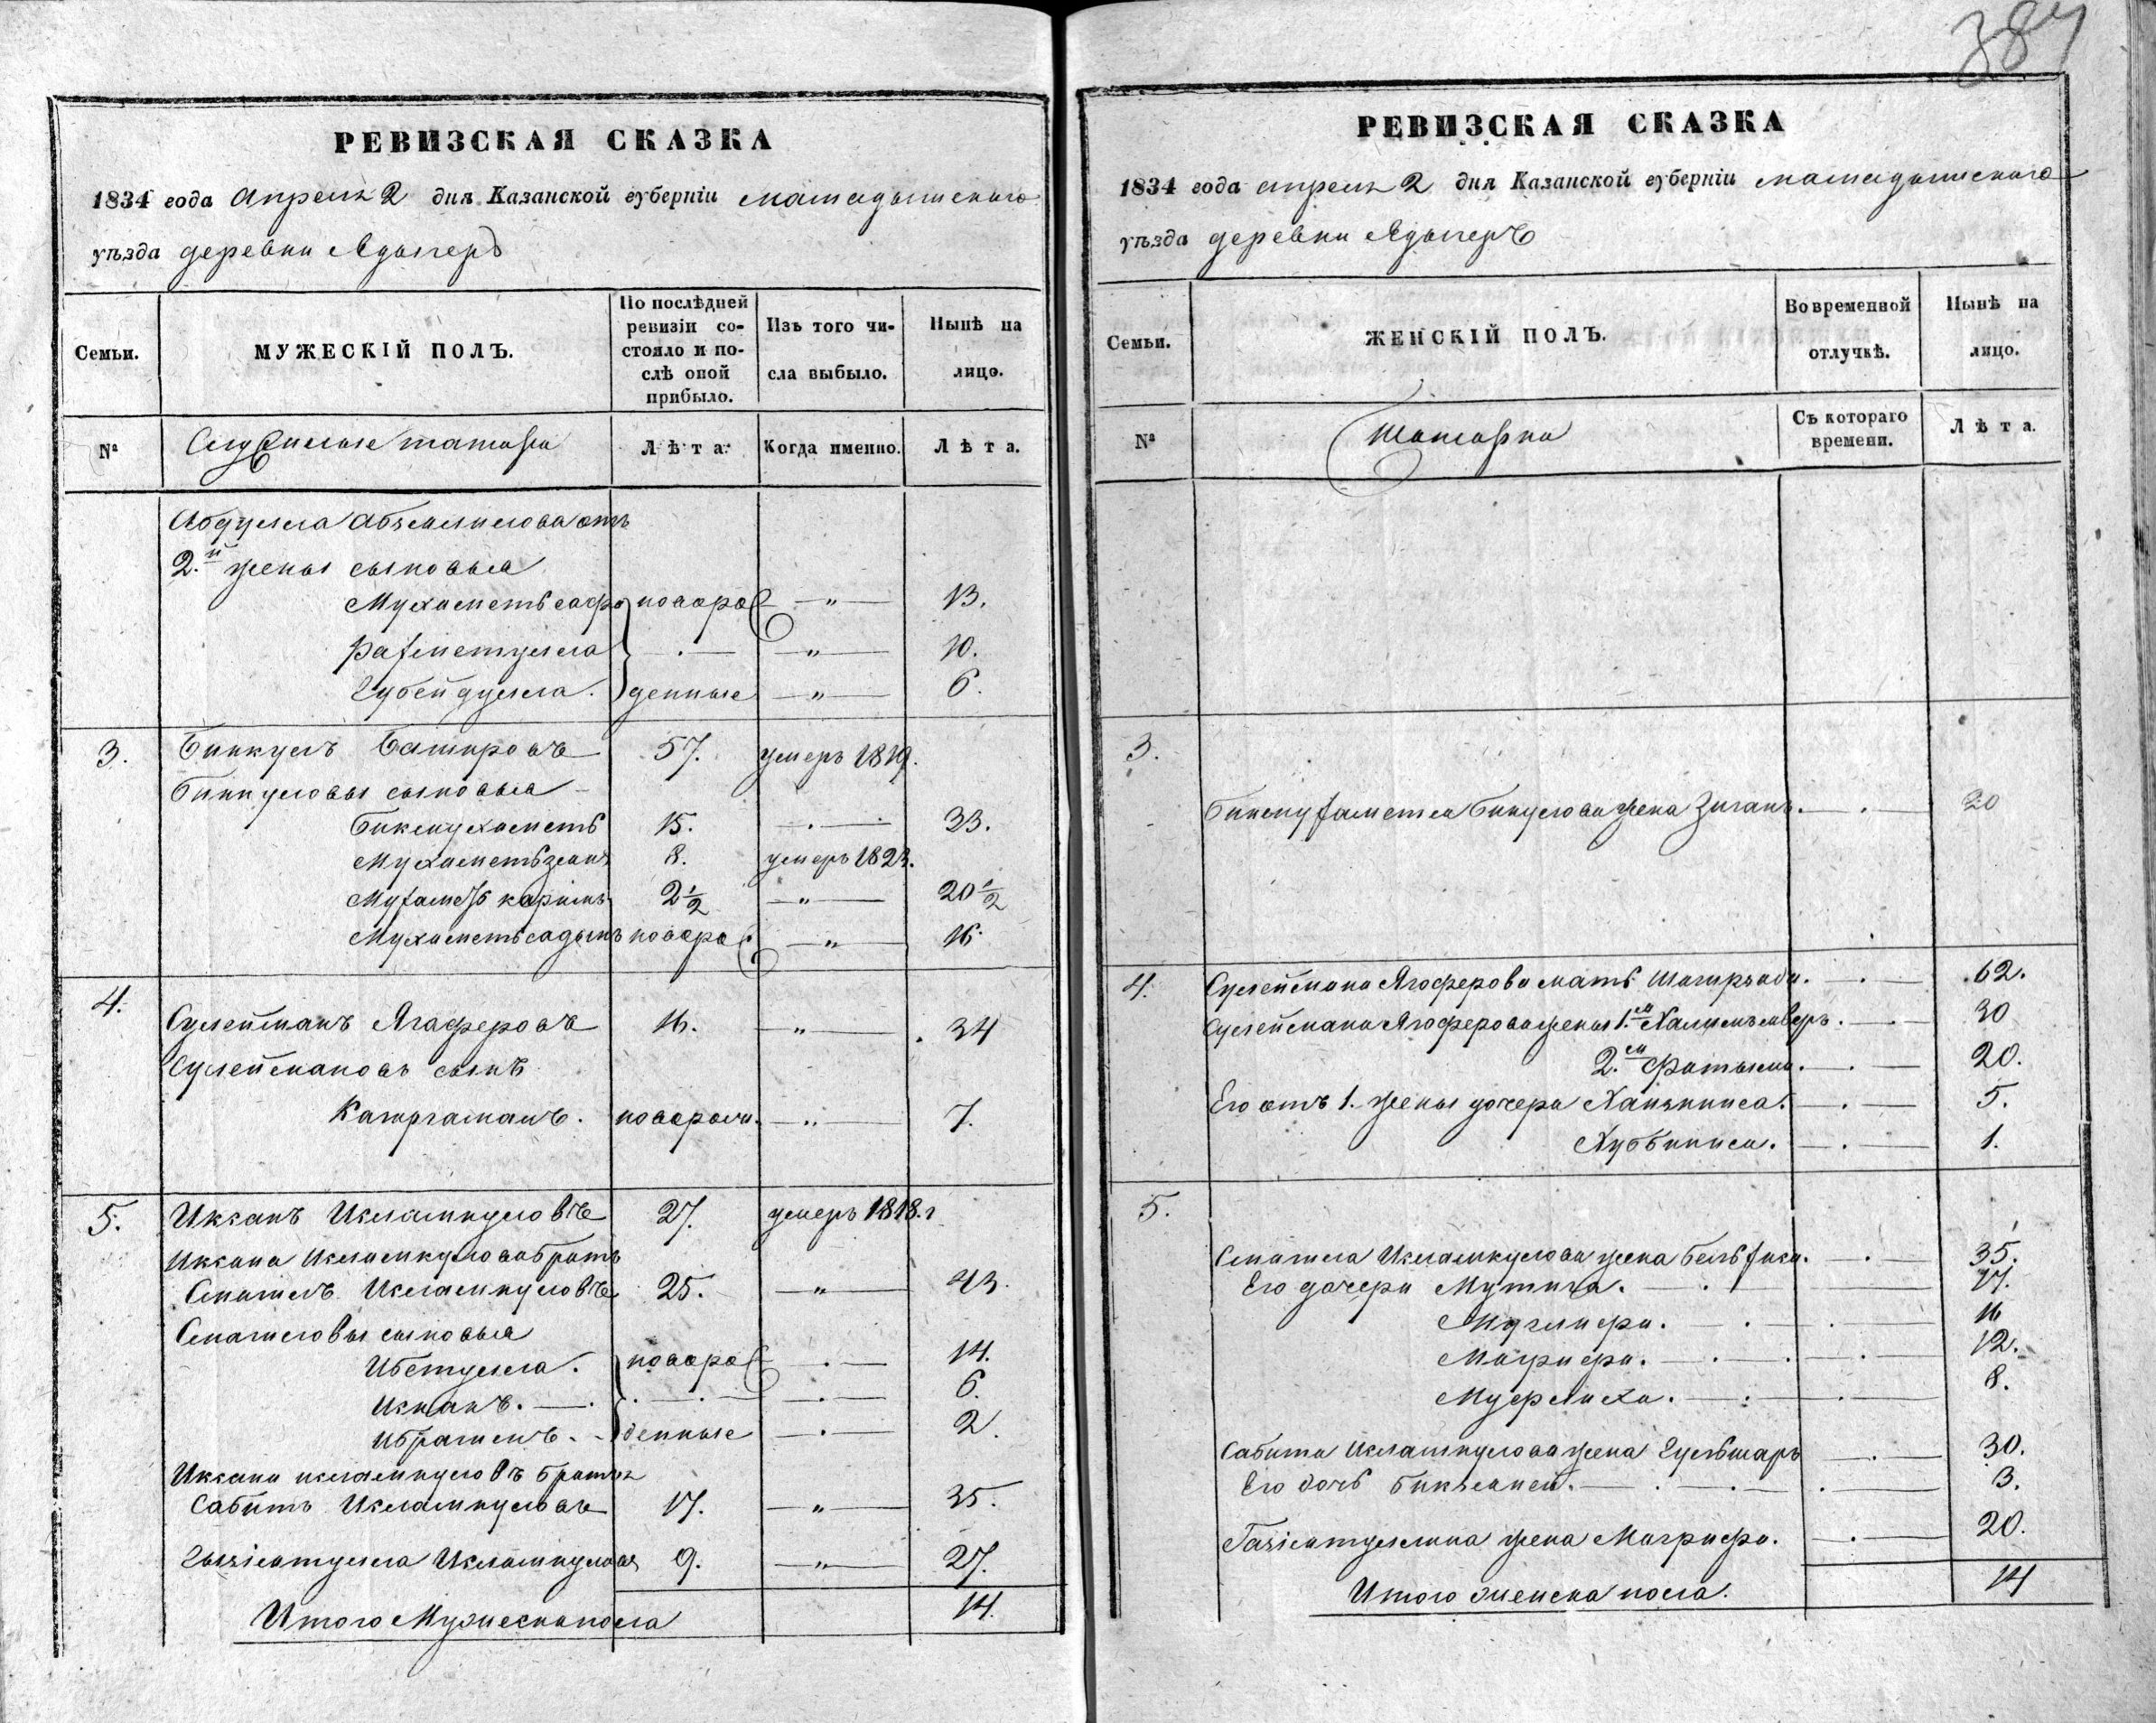 384
РЕВИЗСКАЯ СКАЗКА
1834 года апреля 2 дня Казанской губерніи мамадышскаго
уѣзда деревни Ядыгеръ
Семьи.
МУЖЕСКІЙ ПОЛЪ.
По послѣдней ревизіи состояло и послѣ оной прибыло.
Изъ того числа выбыло.
Нынѣ на лицо.
№
Служилые татары
Лѣта.
Когда именно.
Лѣта.
Абдулла Абземилова отъ
2.й жены сыновья
Мухаметьсафа новоро — " — 13.
Рахметулла — . — " — 10.
Губейдулла. денные — " — 6.
3. Биккулъ Башировъ 57. умеръ 1819.
Биккуловы сыновья
Бикмухаметь 15. — . — 33.
Мухаметьзянъ 8. умеръ 1823.
Мухаметь каримъ 2 1/2 — " — 20 1/2
Мухаметьсадыкъ новоро — " — 16.
4. Сулейманъ Ягаферовъ 16. — " — 34
Сулеймановъ сынъ
новорож. — " — 7.
5. Иксанъ Ишламкуловъ 27. умеръ 1818.г
Иксана Ишламкулова братъ
Смаилъ Ишламкуловъ 25. — " — 43.
Смаиловы сыновья
Ибетулла. новоро — . — 14.
. — . — . — 6.
Ибрагимъ. денные — . — 2.
Иксана Ишламкуловъ братья
Сабитъ Ишламкуловъ 17. — " — 35.
Ишламкуловъ 9. — " — 27.
Итого Мужеска пола 14.
РЕВИЗСКАЯ СКАЗКА
1834 года апреля 2 дня Казанской губерніи мамадышскаго
уѣзда деревни Ядыгеръ
Семьи.
ЖЕНСКІЙ ПОЛЪ.
Во временной отлучкѣ.
Нынѣ на лицо.
№
Татарки
Съ котораго времени.
Лѣта.
3.
Бикмухаметя Бикулова жена — . — 30
4. Сулеймана Ягоферова мать — . — 62.
Сулеймана Ягоферова жены 1.я — . — 30
2.я Фатыма. — . — 20.
Его отъ 1. жены дочери — . — 5.
Хуббиниса. — . — 1.
5.
Смаила Ишламкулова жена — . — 35.
Его дочери — . — 17.
— . — 16
Магрифа. — . — 12.
Муфлиха. — . — 8.
Сабита Ишламкулова жена — . — 30.
Его дочь — . — 3.
жена Магрифа. — . — 20.
Итого женска пола. 14